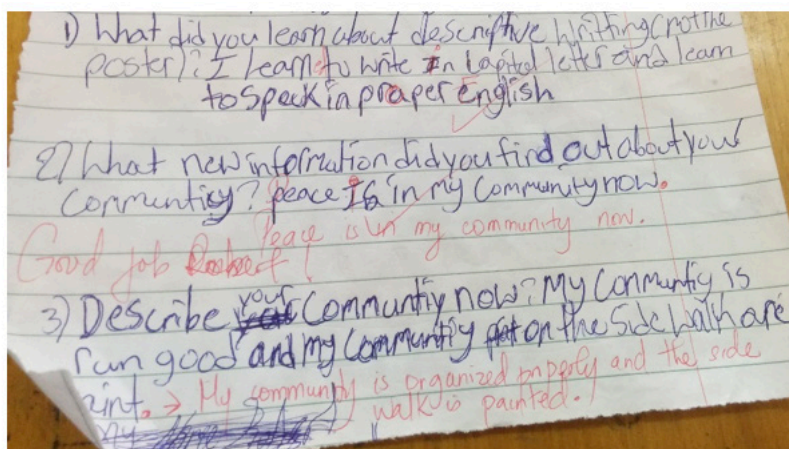 1) What did you learn about descriptive Writting (not the
poster)? I Learn to write in Capital letter and learn
to speak in proper English
2) What new information did you find out about your
Community? peace is in my Community now.
Peace is in my community now.
Good job
3) Describe your Communtiy now? My Conmuntiy is
run good and my Communtiy on the Side Walk are
aint. → My community is organized properly and the side
walk is painted.
my